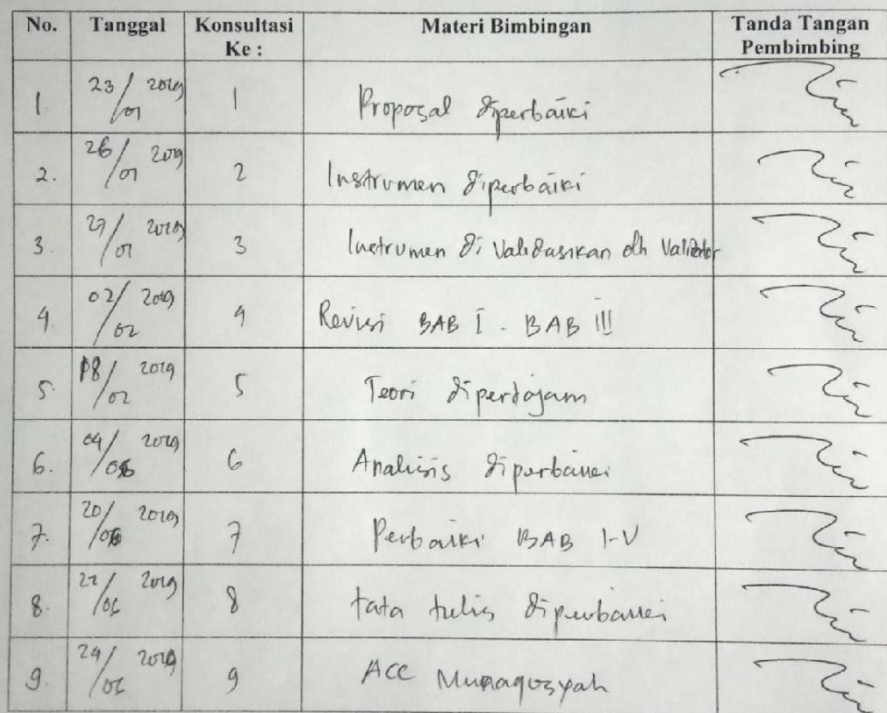 No. Tanggal Konsultasi Ke : Materi Bimbingan Tanda Tangan Pembimbing
1. 23/01 2019 1 Proposal diperbaiki
2. 26/01 2019 2 Instrumen diperbaiki
3. 29/01 2019 3 Instrumen di Validasikan olh Validator
4. 02/02 2019 4 Revisi BAB I - BAB III
5. 18/02 2019 5 Teori dipertajam
6. 04/06 2019 6 Analisis diperbaiki
7. 20/06 2019 7 Perbaiki BAB I-V
8. 22/06 2019 8 tata tulis diperbaiki
9. 24/06 2019 9 ACC Munaqosyah